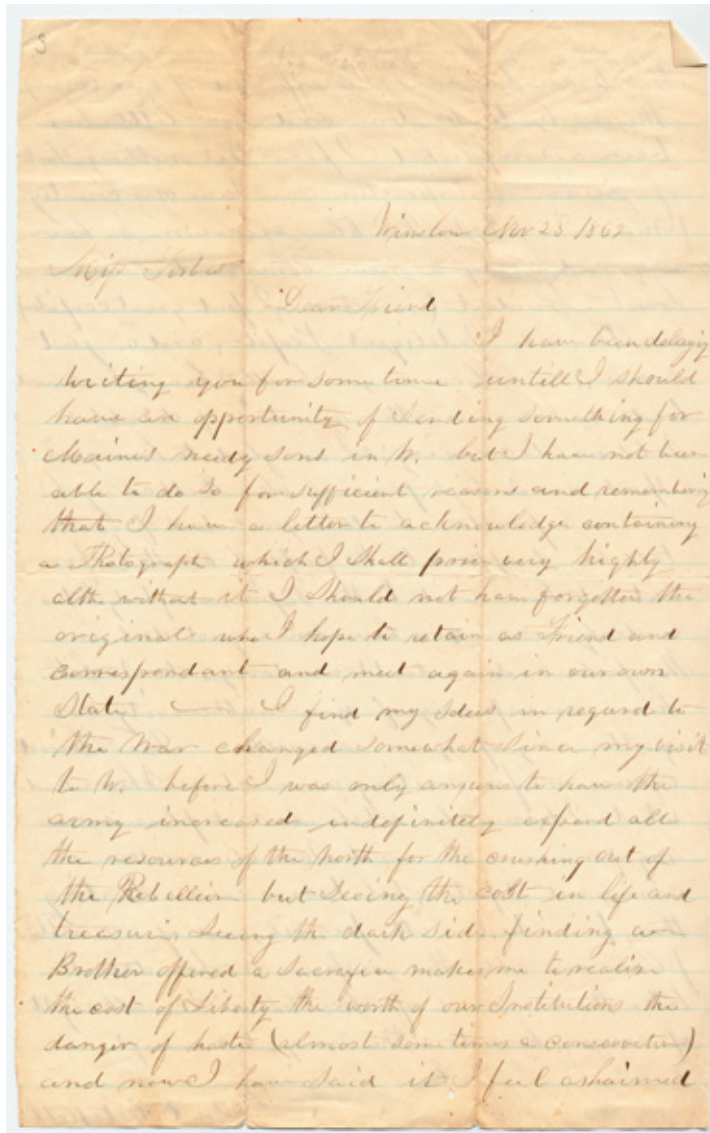 3
Winslow Nov 23 1862
Miss
Dear Friend
I have been delaying
writing you for some time untill I should
have an opportunity of sending something for
Maines needy sons in W. but I have not been
able to do so for sufficient reasons and remembering
that I have a letter to acknowledge containing
a Photograph which I shall prize very highly
altho without it I should not have forgotten the
original who I hope to retain as Friend and
correspondant and meet again in our own
State — I find my ideas in regard to
the War changed somewhat since my visit
to W. before I was only anxious to have the
army increased indefinitely expend all
the resources of the North for the crushing out of
the Rebellion but seeing the cost in life and
treasure seeing the dark side finding a
Brother offered a sacrifice makes me to realize
the cost of Liberty the worth of our Institutions the
danger of haste (almost sometimes a conservative)
and now I have said it I feel ashaimed